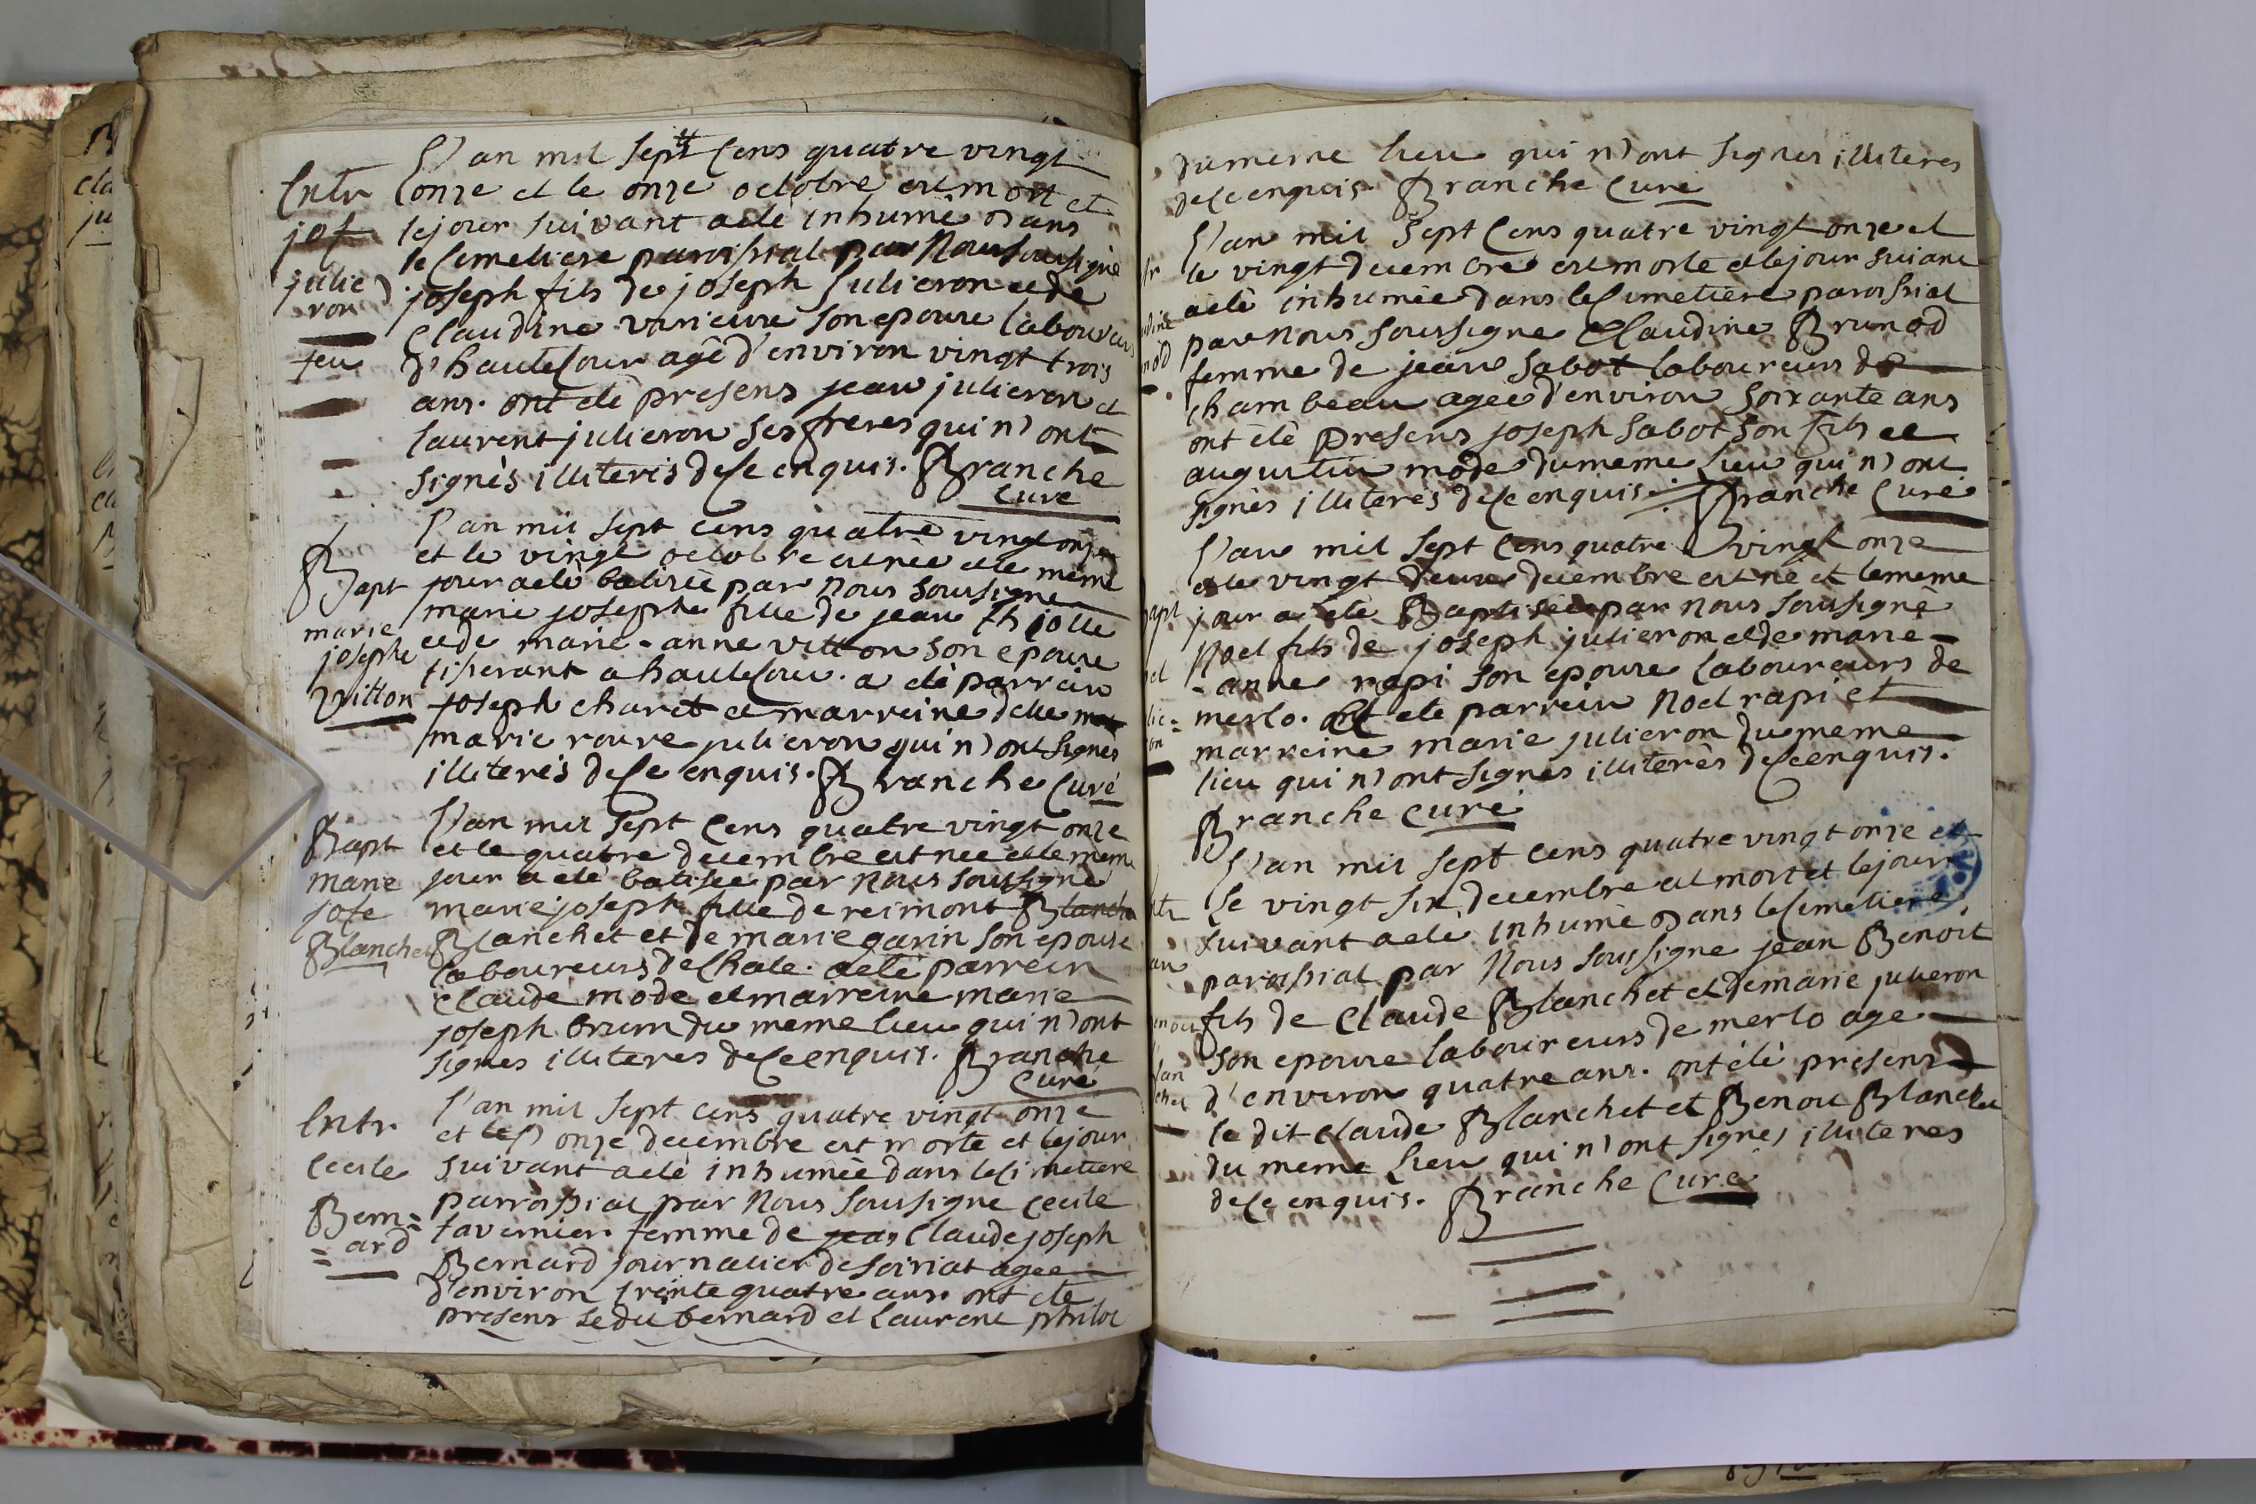 Entr
jos
julie
ron
feu
L'an mil sept cens quatre vingt
onze et le onze octobre est mort et
le jour suivant a eté inhumé dans
le cimetiere paroissial par Nous soussigné
joseph fils de joseph Julieron et de
Claudine son epouse laboureurs
d'hautecour agé d'environ vingt trois
ans. ont eté presens jean julieron et
laurent julieron ses freres qui n'ont
signés illiterés de ce enquis. Branche
Curé
Bapt
marie
josephe
Vitton
L'an mil sept cens quatre vingt onze
et le vingt octobre est née et le meme
jour a eté batisée par Nous soussigné
marie josephe fille de jean
et de marie-anne vitton son epouse
tisserant a hautecour. a eté parrein
joseph charet et marreine
marie roure julieron qui n'ont signés
illiterés de ce enquis. Branche Curé
Bapt
Marie
jose
Blanchet
L'an mil sept cens quatre vingt onze
et le quatre decembre est née et le meme
jour a eté batisée par Nous soussigné
marie joseph fille de reimont Blanche
Blanchet et de marie garin son epouse
laboureurs de Chale. a eté parrein
Claude mode et marreine marie
joseph brun du meme lieu qui n'ont
signes illiteres de ce enquis. Branche
Curé
Entr.
Cecile
Bern=
=ard
L'an mil sept cens quatre vingt onze
et le onze decembre est morte et le jour
suivant a eté inhumée dans le cimetiere
parroissial par Nous soussigné Cecile
tavernier femme de jean Claude joseph
Bernard journalier de soiriat agee
d'environ trente quatre ans. ont eté
presens le dit bernard et Laurent
du meme lieu qui n'ont signés illiteres
de ce enquis. Branche Curé
L'an mil sept cens quatre vingt onze et
le vingt decembre est morte et le jour suivant
a eté inhumée dans le Cimetiere paroissial
par Nous soussigné Claudine Brunod
femme de jean Sabot laboureurs de
chambeau agée d'environ soixante ans
ont eté presens joseph Sabot son fils et
augustin mode du meme lieu qui n'ont
signés illiterés de ce enquis. Branche Curé
L'an mil sept cens quatre vingt onze
et le vingt deux decembre est né et le meme
jour a eté Baptisée par nous soussigné
Noel fils de joseph julieron et de marie-
-anne rapi son epouse laboureurs de
merlo. eté parrein Noel rapi et
marreine marie julieron du meme
lieu qui n'ont signés illiterés de ce enquis.
Branche Curé
L'an mil sept cens quatre vingt onze et
le vingt six decembre est mort et le jour
suivant a eté inhumé dans le cimetiere
paroissial par Nous soussigné jean Benoit
fils de Claude Blanchet et de marie julieron
son epouse laboureurs de merlo agé
d'environ quatre ans. ont eté presens
le dit Claude Blanchet et Benoit Blanchet
du meme lieu qui n'ont signés illiteres
de ce enquis. Branche Curé